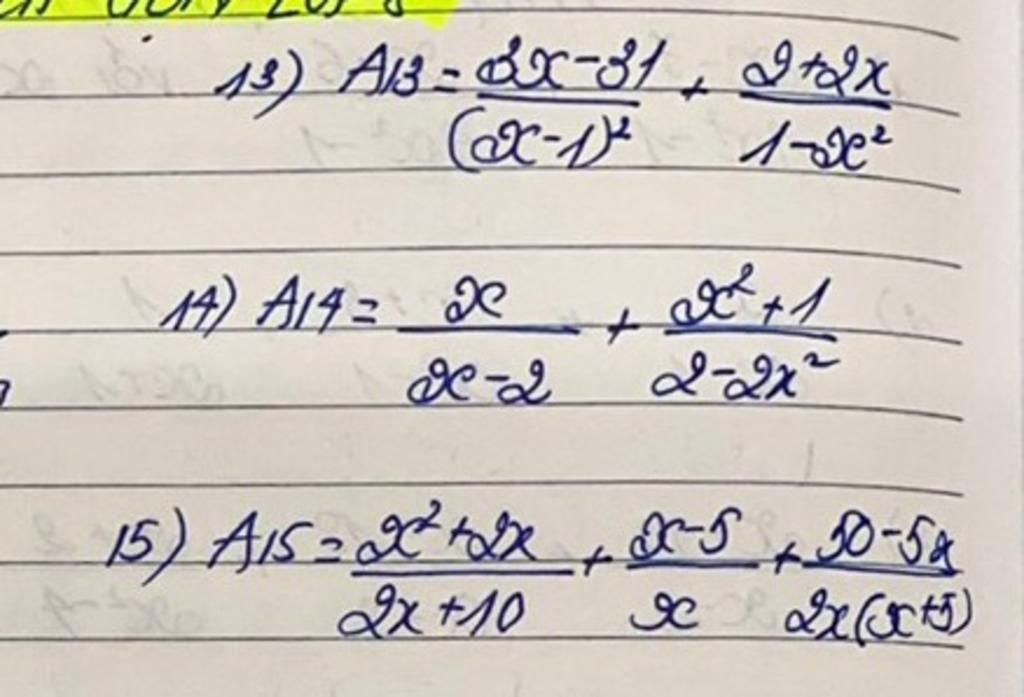 13) A13 = \frac{3x-31}{(x-1)^2} + \frac{2+2x}{1-x^2}
14) A14 = \frac{x}{x-2} + \frac{x^2+1}{2-2x^2}
15) A15 = \frac{x^2+2x}{2x+10} + \frac{x-5}{x} + \frac{50-5x}{2x(x+5)}